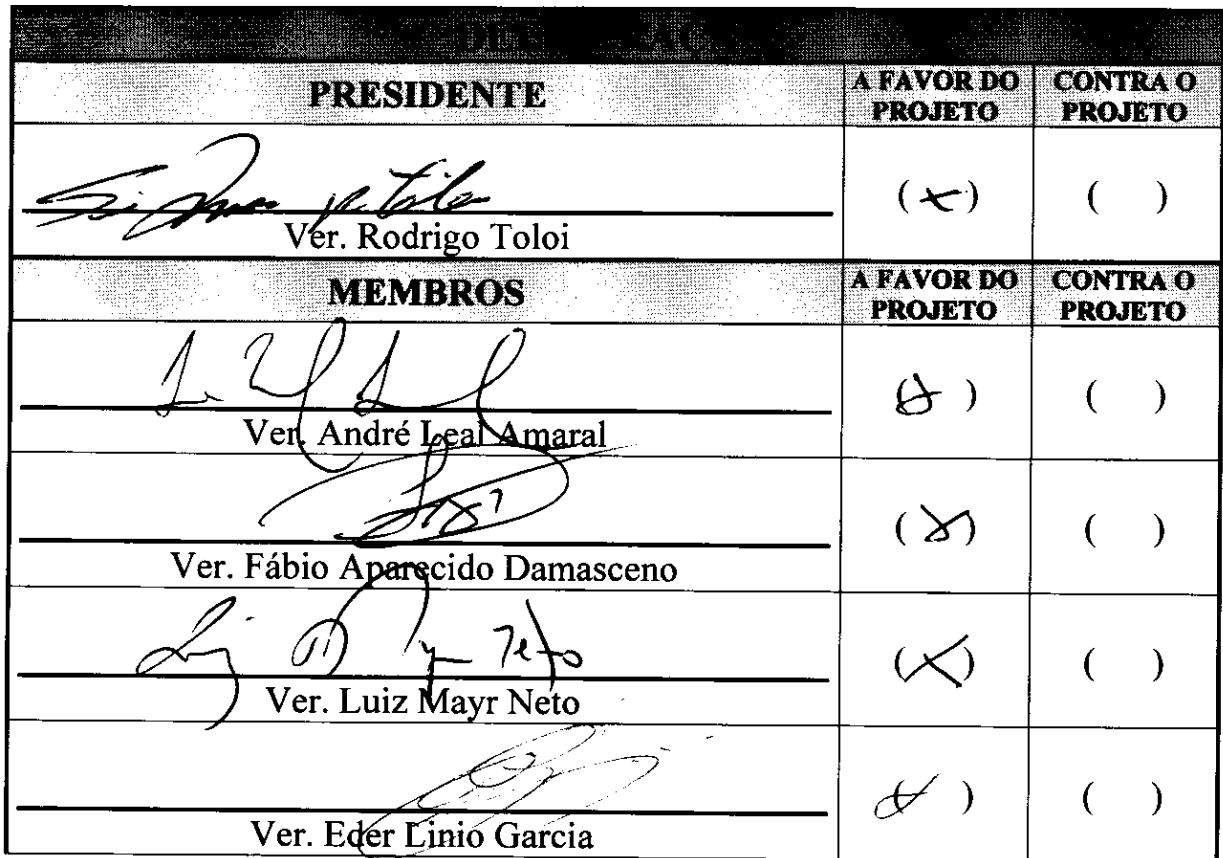 PRESIDENTE
A FAVOR DO PROJETO
CONTRA O PROJETO
(x)
( )
Ver. Rodrigo Toloi
MEMBROS
A FAVOR DO PROJETO
CONTRA O PROJETO
(x)
( )
Ver. André Leal Amaral
(x)
( )
Ver. Fábio Aparecido Damasceno
(x)
( )
Ver. Luiz Mayr Neto
(x)
( )
Ver. Eder Linio Garcia